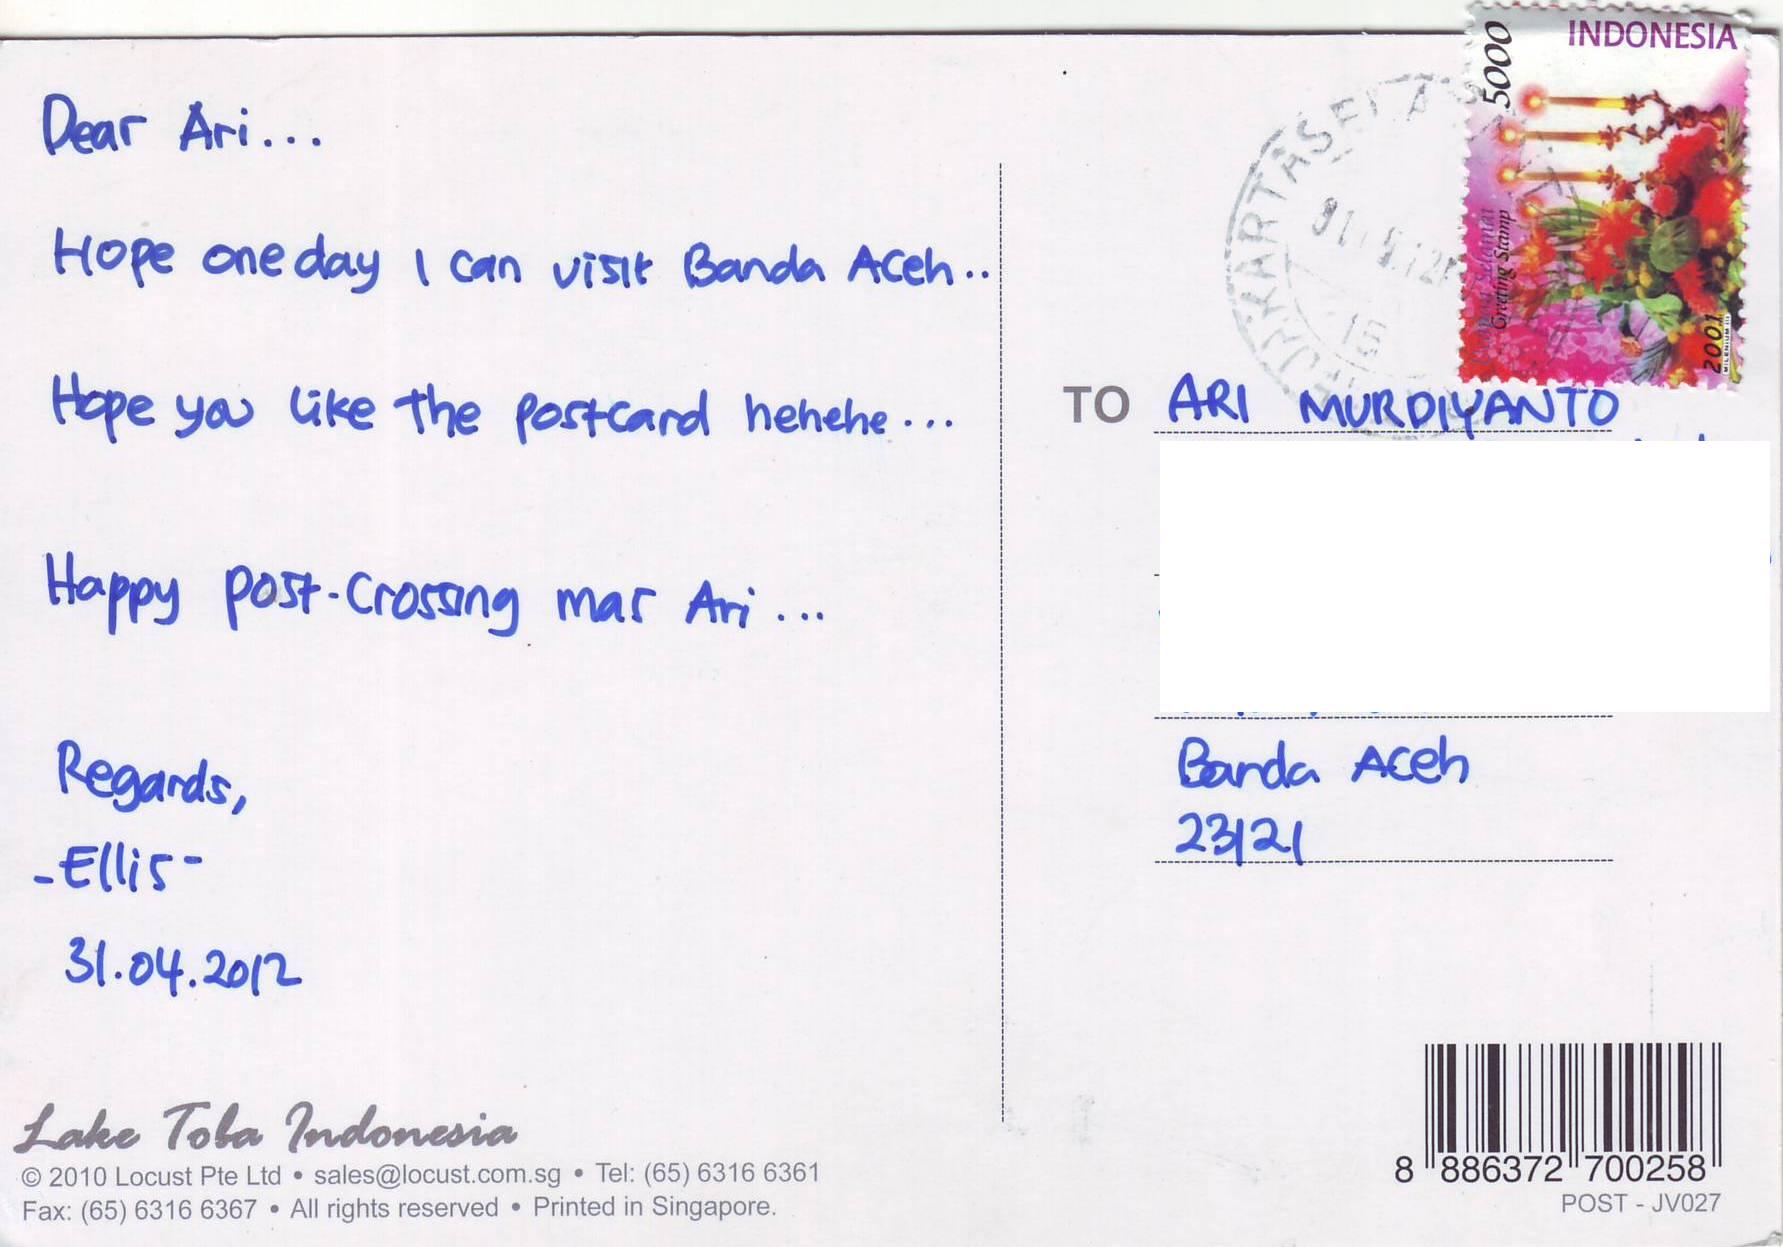 Dear Ari...
Hope one day I can visit Banda Aceh..
Hope you like the postcard hehehe...
Happy post-crossing mas Ari...
Regards,
-Ellis-
31.04.2012
Lake Toba Indonesia
© 2010 Locust Pte Ltd • sales@locust.com.sg • Tel: (65) 6316 6361
Fax: (65) 6316 6367 • All rights reserved • Printed in Singapore.
INDONESIA
5000
Greeting Stamp
2001
TO ARI MURDIYANTO
Banda Aceh
23121
8 886372 700258
POST - JV027